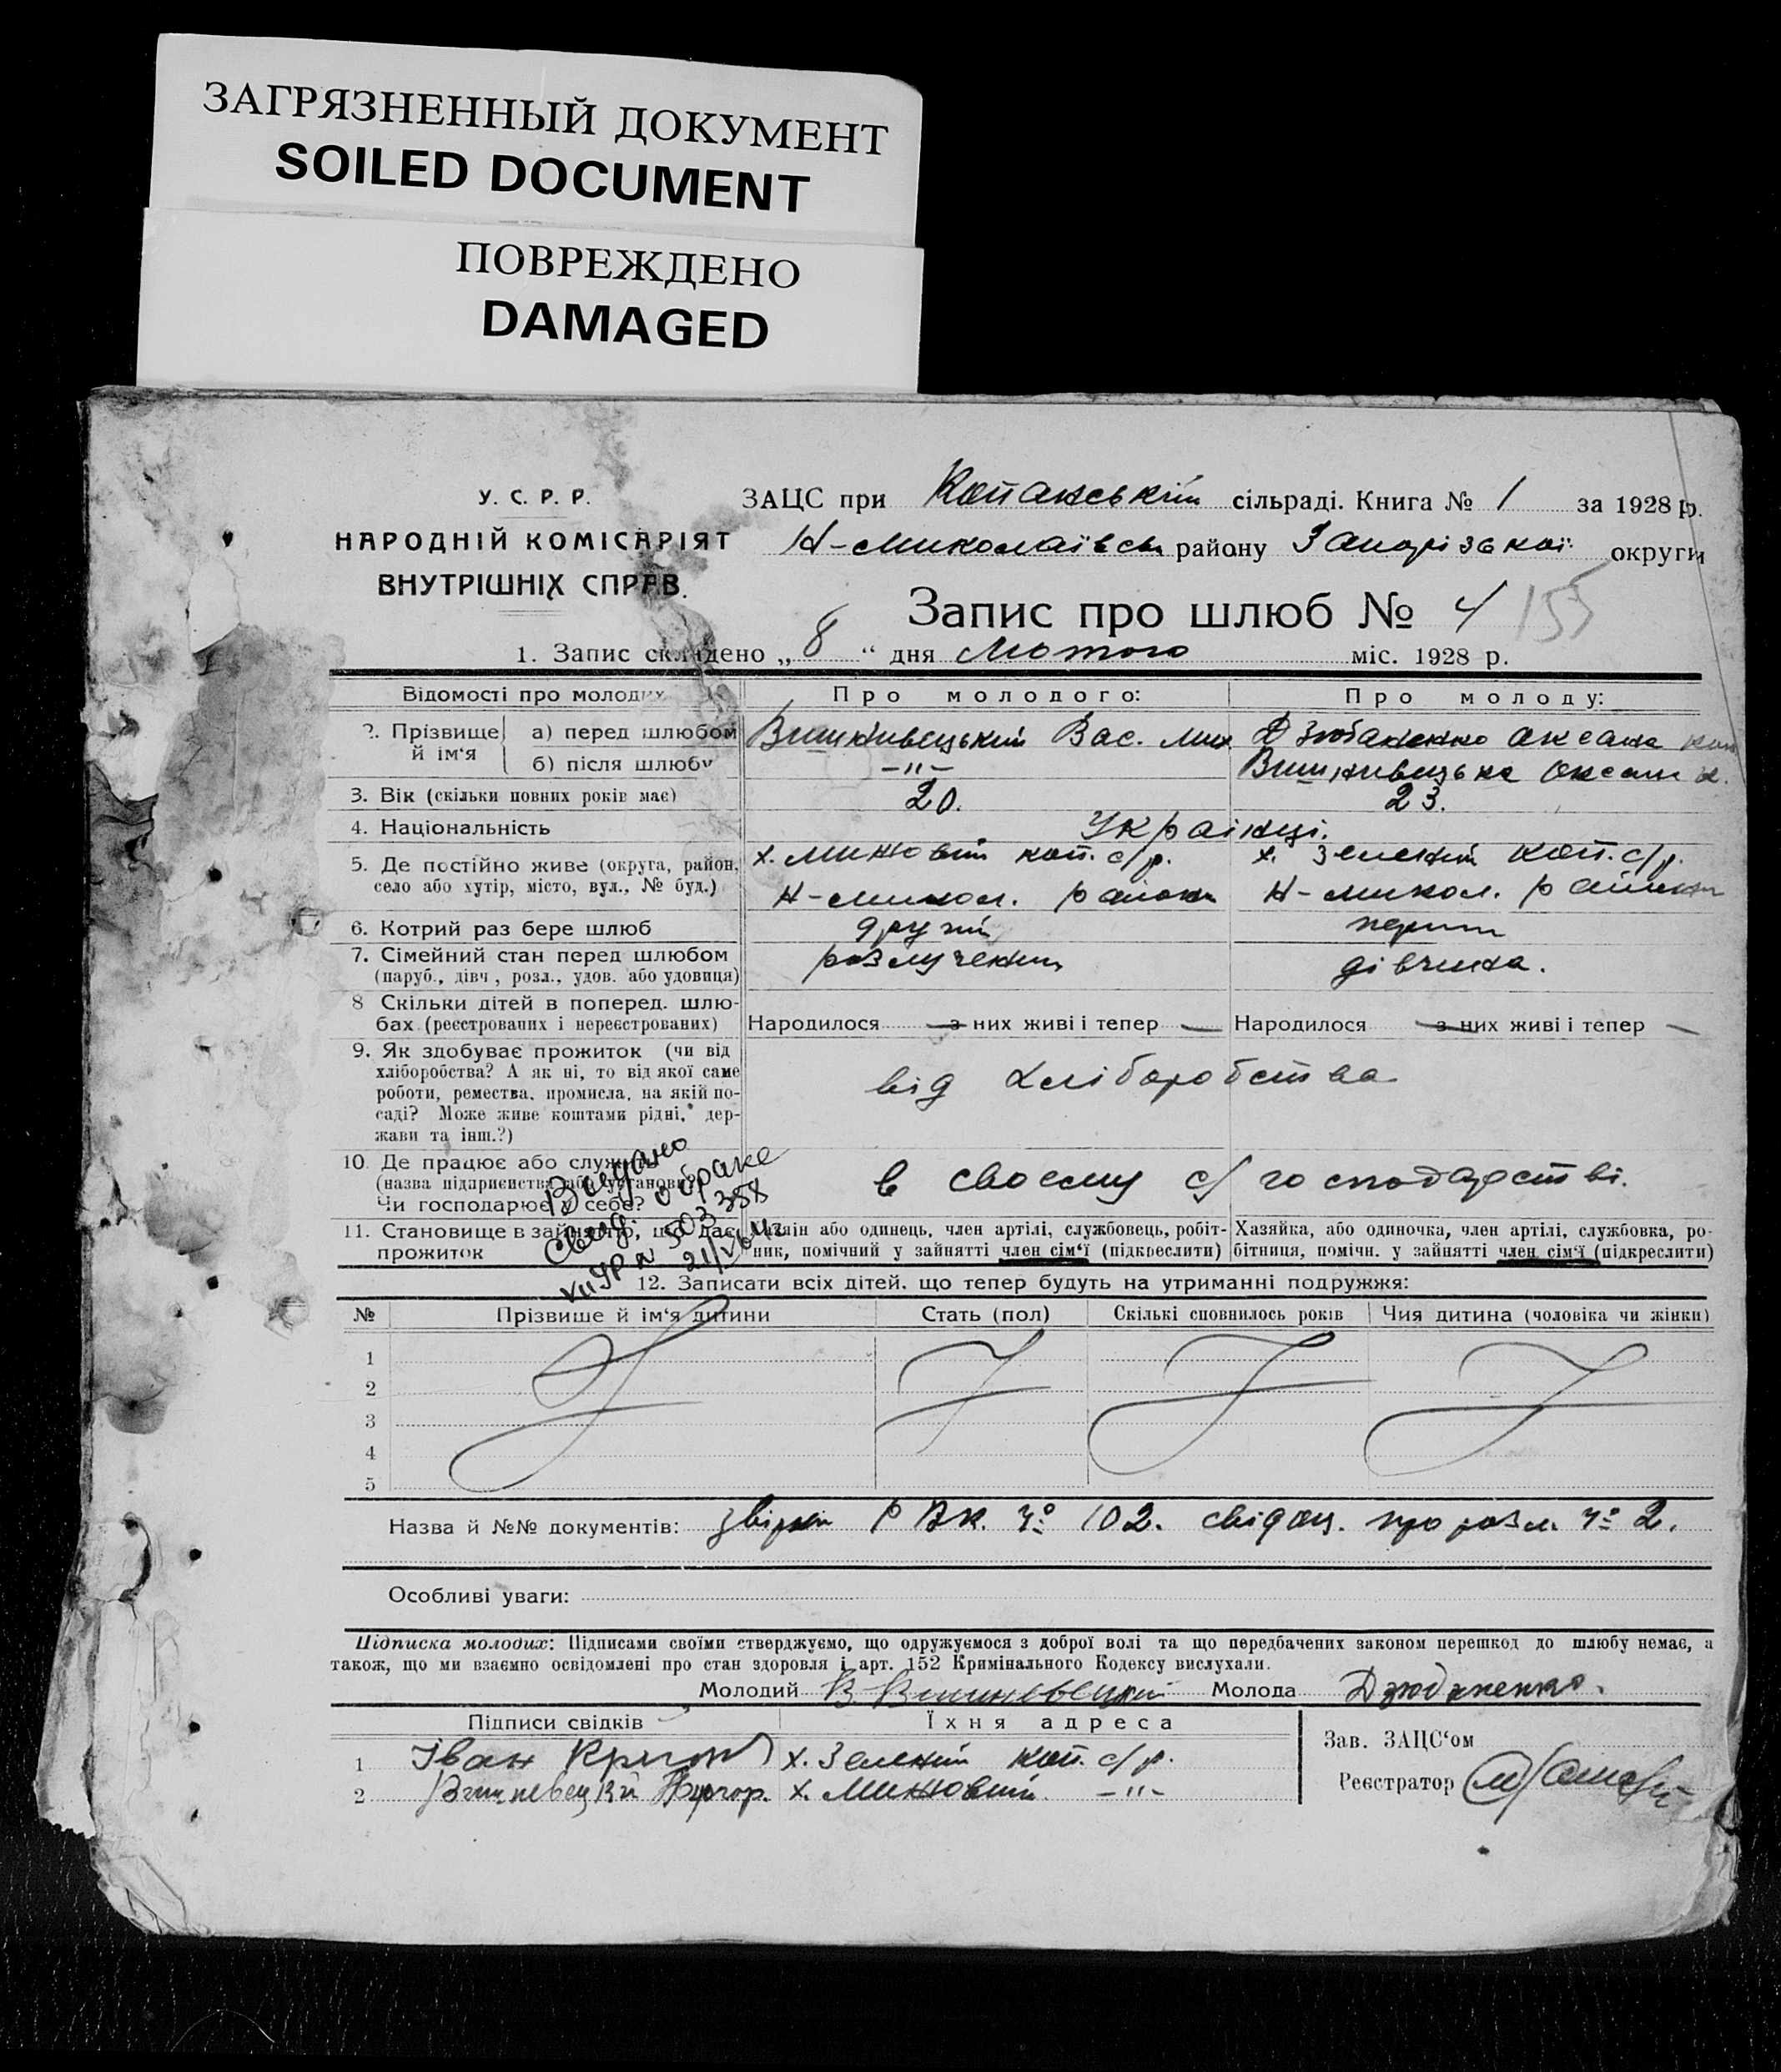 ЗАГРЯЗНЕННЫЙ ДОКУМЕНТ
SOILED DOCUMENT
ПОВРЕЖДЕНО
DAMAGED
У. С. Р. Р.
НАРОДНІЙ КОМІСАРІЯТ
ВНУТРІШНІХ СПРАВ.
ЗАЦС при Копанській сільраді. Книга № 1 за 1928 р.
Н-Миколаївськ району Запорізької округи
Запис про шлюб № 4 155
1. Запис складено „ 8 “ дня Лютого міс. 1928 р.
Відомості про молодих Про молодого: Про молоду:
2. Прізвище й ім'я а) перед шлюбом Вишнивецький Вас. Мих. Дзюбаненко Аксана
б) після шлюбу -"- Вишнивецька Оксана
3. Вік (скільки повних років має) 20. 23.
4. Національність Українці.
5. Де постійно живе (округа, район, х. Миновий коп. с/р. х. Зелений коп. с/р.
село або хутір, місто, вул., № буд.) Н-Микол. району Н-микол. району
6. Котрий раз бере шлюб другий перший
7. Сімейний стан перед шлюбом розлучений дівчина.
(паруб., дівч., розл., удов. або удовиця)
8 Скільки дітей в поперед. шлю-
бах (реєстрованих і нереєстрованих) Народилося — з них живі і тепер — Народилося — з них живі і тепер —
9. Як здобуває прожиток (чи від
хліборобства? А як ні, то від якої саме
роботи, ремества, промисла, на якій по-
саді? Може живе коштами рідні, дер-
жави та інш.?)
від хліборобства
10. Де працює або служить
(назва підприємства або установи)
Чи господарює у себе?
в своєму с/господарстві.
Выдано
свид. о браке
№ 503388
11. Становище в зайнятті, що дає
прожиток
Хазяін або одинець, член артілі, службовець, робіт-
ник, помічний у зайнятті член сім'ї (підкреслити)
Хазяйка, або одиночка, член артілі, службовка, ро-
бітниця, помічн. у зайнятті член сім'ї (підкреслити)
12. Записати всіх дітей. що тепер будуть на утриманні подружжя:
№ Прізвише й ім'я дитини Стать (пол) Скількі сповнилось років Чия дитина (чоловіка чи жінки)
1
2
3
4
5
Назва й №№ документів: РВК. № 102. свідоц. про розл. № 2.
Особливі уваги:
Підписка молодих: Підписами своїми стверджуємо, що одружуємося з доброї волі та що передбачених законом перешкод до шлюбу немає, а
також, що ми взаємно освідомлені про стан здоровля і арт. 152 Кримінального Кодексу вислухали.
Молодий В Вишневецкий Молода Дзюбаненко.
Підписи свідків Їхня адреса
1 Іван х. Зелений коп. с/р.
2 Вишневецкий х. Миновий -"-
Зав. ЗАЦС'ом
Реєстратор